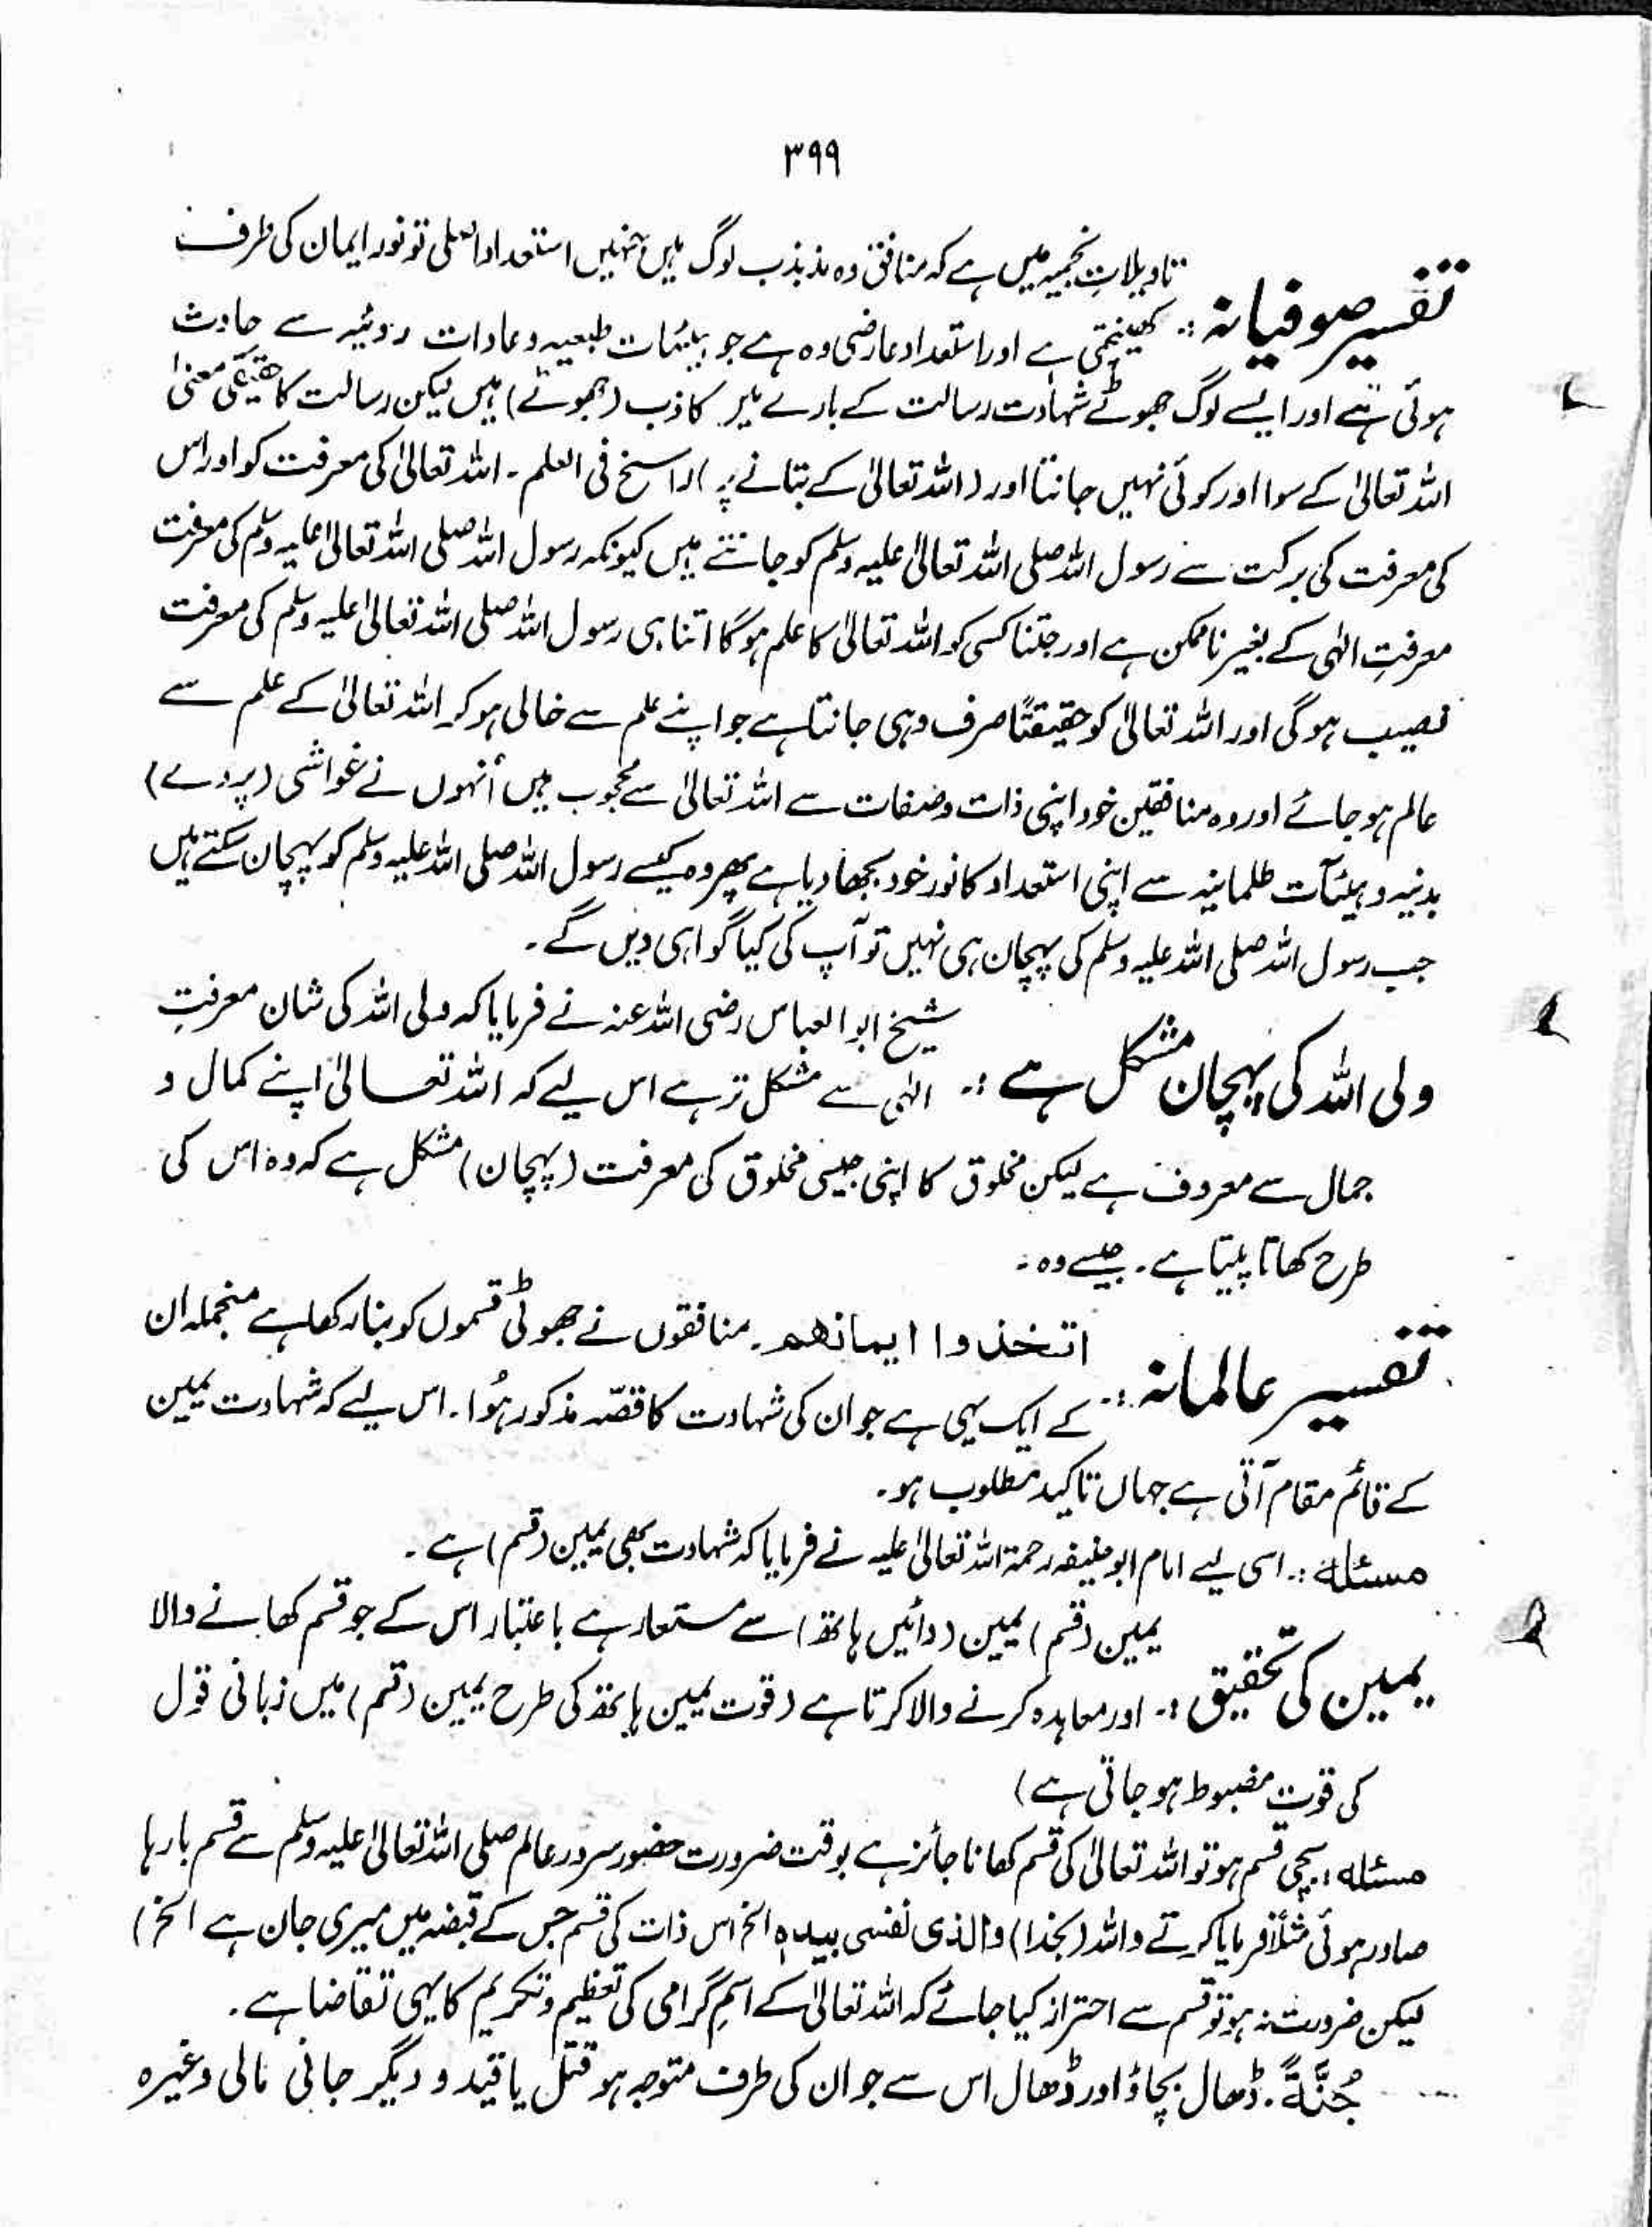 ۳۹۹
تفسیر صوفیانہ :. تاویلاتِ نجمیہ میں ہے کہ منافق وہ مذبذب لوگ ہیں جنہیں استعداد اصلی تو نور ایمان کی طرف
کھینچتی ہے اور استعداد عارضی وہ ہے جو ہیئات طبعیہ و عادات ردئیہ سے حادث
ہوئی ہے اور ایسے لوگ جھوٹے شہادت رسالت کے بارے میں کاذب (جھوٹے) ہیں لیکن رسالت کا حقیقی معنیٰ
اللہ تعالیٰ کے سوا اور کوئی نہیں جانتا اور (اللہ تعالیٰ کے بتانے پر) راسخ فی العلم ۔ اللہ تعالیٰ کی معرفت کو اور اس
کی معرفت کی برکت سے رسول اللہ صلی اللہ تعالیٰ علیہ وسلم کو جانتے ہیں کیونکہ رسول اللہ صلی اللہ تعالیٰ علیہ وسلم کی معرفت
معرفتِ الٰہی کے بغیر ناممکن ہے اور جتنا کسی کو اللہ تعالیٰ کا علم ہوگا اتنا ہی رسول اللہ صلی اللہ تعالیٰ علیہ وسلم کی معرفت
نصیب ہوگی اور اللہ تعالیٰ کو حقیقتًا صرف وہی جانتا ہے جو اپنے علم سے خالی ہو کر اللہ تعالیٰ کے علم سے
عالم ہو جائے اور وہ منافقین خود اپنی ذات و صفات سے اللہ تعالیٰ سے محجوب ہیں اُنہوں نے غواشی (پردے)
بدنیہ و ہیئآت ظلمانیہ سے اپنی استعداد کا نور خود بجھا دیا ہے پھر وہ کیسے رسول اللہ صلی اللہ علیہ وسلم کو پہچان سکتے ہیں
جب رسول اللہ صلی اللہ علیہ وسلم کی پہچان ہی نہیں تو آپ کی کیا گواہی دیں گے ۔
ولی اللہ کی پہچان مشکل ہے :. شیخ ابوالعباس رضی اللہ عنہ نے فرمایا کہ ولی اللہ کی شان معرفتِ
الٰہی سے مشکل تر ہے اس لیے کہ اللہ تعالیٰ اپنے کمال و
جمال سے معروف ہے لیکن مخلوق کا اپنی جیسی مخلوق کی معرفت (پہچان) مشکل ہے کہ وہ اس کی
طرح کھاتا پیتا ہے ۔ جیسے وہ ۔
تفسیر عالمانہ :. اتخذوا ایمانهم ۔ منافقوں نے جھوٹی قسموں کو بنا رکھا ہے منجملہ ان
کے ایک یہی ہے جو ان کی شہادت کا قصّہ مذکور ہُوا ۔ اس لیے کہ شہادت یمین
کے قائم مقام آتی ہے جہاں تاکید مطلوب ہو ۔
مسئلہ :. اسی لیے امام ابوحنیفہ رحمۃ اللہ تعالیٰ علیہ نے فرمایا کہ شہادت بھی یمین (قسم) ہے ۔
یمین کی تحقیق :. یمین (قسم) یمین (دائیں ہاتھ) سے مستعار ہے باعتبار اس کے جو قسم کھانے والا
اور معاہدہ کرنے والا کرتا ہے (قوت یمین ہاتھ کی طرح یمین (قسم) میں زبانی قول
کی قوت مضبوط ہو جاتی ہے)
مسئلہ : سچی قسم ہو تو اللہ تعالیٰ کی قسم کھانا جائز ہے بوقت ضرورت حضور سرور عالم صلی اللہ تعالیٰ علیہ وسلم سے قسم بارہا
صادر ہوئی مثلاً فرمایا کرتے واللہ (بخدا) والذی نفسی بیدہ الخ اس ذات کی قسم جس کے قبضہ میں میری جان ہے الخ)
لیکن ضرورت نہ ہو تو قسم سے احتراز کیا جائے کہ اللہ تعالیٰ کے اسمِ گرامی کی تعظیم و تکریم کا یہی تقاضا ہے ۔
جُنَّةً ۔ ڈھال بچاؤ اور ڈھال اس سے جو ان کی طرف متوجہ ہو قتل یا قید و دیگر جانی مالی وغیرہ